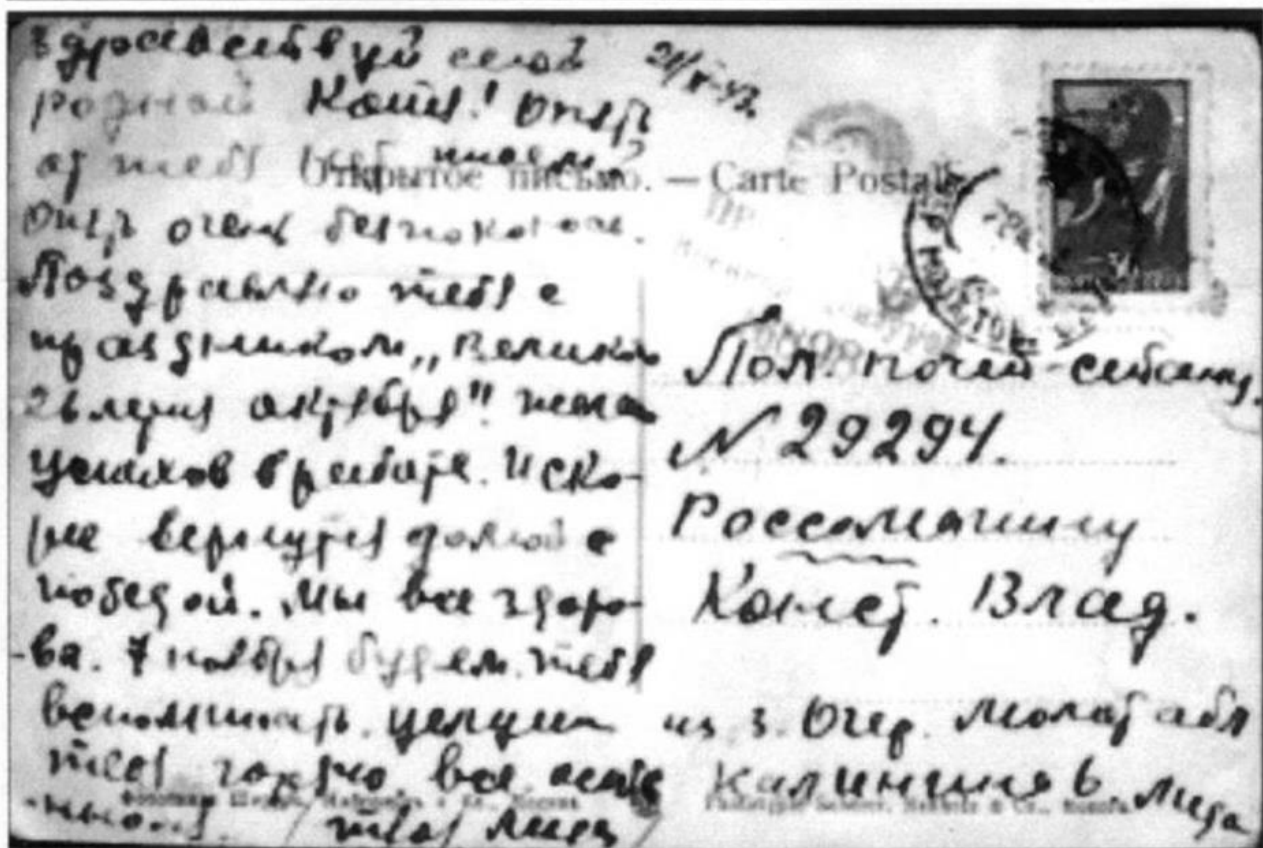 Здравствуй
21/X-43.
родной Котя! Опять
от тебя нет писем,
опять очень безпокоюсь.
Поздравляю тебя с
праздником „Великой
26 летия октября" желаю
успехов в работе. И ско-
рее вернутся домой с
победой. Мы все здоро-
ва. 7 ноября будем тебя
вспоминать. целуем
тебя горячо все
твоя Лида
Открытое письмо. — Carte Postale.
Пол. почт.
N 29294.
Россомагину
Конст. Влад.
из г. Очер. Молот обл
Калинина 6 Лида